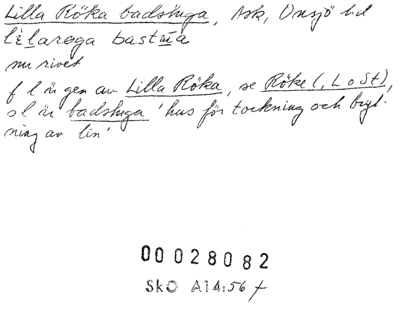 Lilla Röka badstuga, Ask, Onsjö hd
lìlaröga bastua
nu rivet
f l är gen av Lilla Röka, se Röke (, L o St),
s l är badstuga 'hus för torkning och bryt-
ning av lin'
00 028082
SkO A14:56